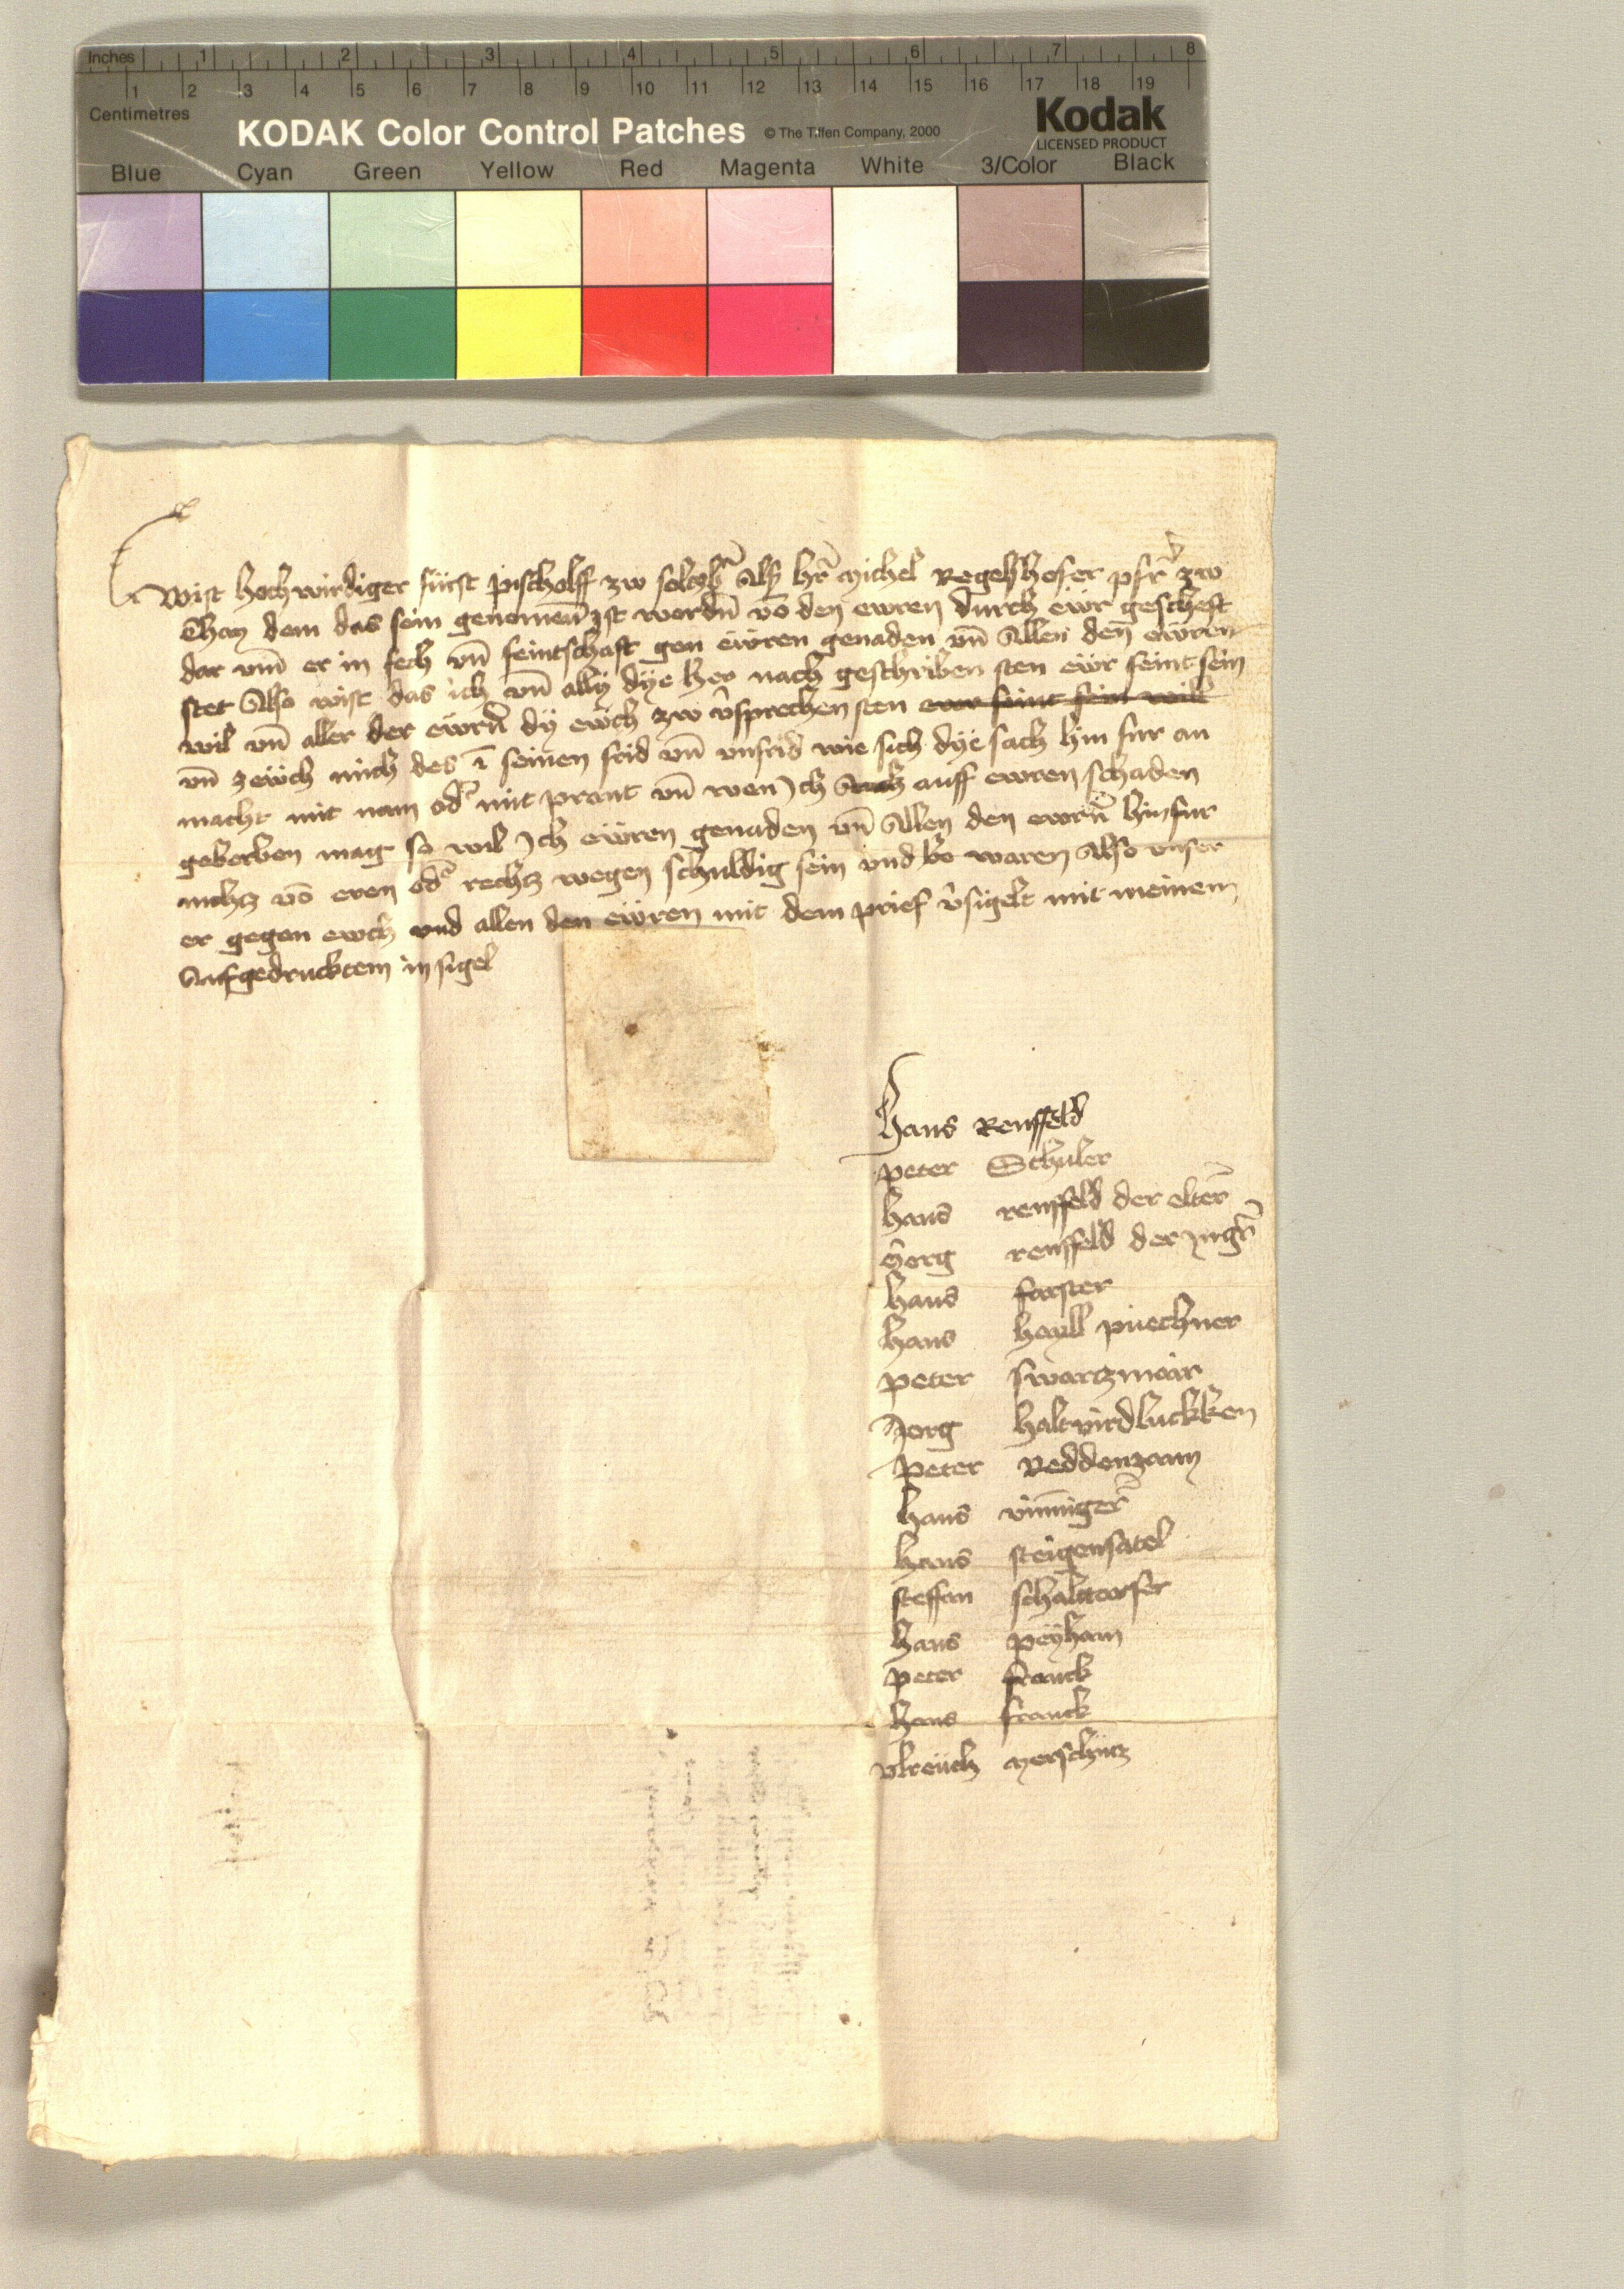 Inches 1 2 3 4 5 6 7 8
1 2 3 4 5 6 7 8 9 10 11 12 13 14 15 16 17 18 19
Centimetres
KODAK Color Control Patches © The Tiffen Company, 2000 Kodak
LICENSED PRODUCT
Blue Cyan Green Yellow Red Magenta White 3/Color Black
Wist hochwirdiger fürst pischolff zw Als hr̄ Michel pfr̄ zw
dem das sein genomen̄ ist wordn̄ vō den ewren durch ewr gescheft
dar vm̄ er in fech vn̄ feintschaft gen ewren genaden vn̄ Allen den̄ ewren
stet Also wist das ich vn̄ ally dye her nach geschriben sten ewr feint sein
wil vn̄ aller der ewrn̄ dy ewch zw v̄sprechen sten ewr feint sein will
vn̄ zewch mich des ī seinen frid vn̄ vnfrid wie sich dye sach hin fur an
macht mit nam od̄ mit prant vn̄ wen Ich auff ewren schaden
geberben mag so wil Ich ewren genaden vn̄ Allen den ewrn̄ hinfur
nichz vō eren od̄ rechz wegen schuldig sein vnd bewaren Also vnser
er gegen ewch vnd allen den ewren mit dem prief v̄sigelt mit meinem
Aufgedrucktem insigel
Hans Renffeld
peter Schuler
hans renffeld der elter
Gorg renffeld der Jngr̄
hans forster
hans hayll puechner
peter swarzmair
Jorg haltvirdluckken
Peter Reddenzaam
hans
hans steigensatel
steffan schaltdorfer
hans peyham
peter franck
hans franck
vlreich